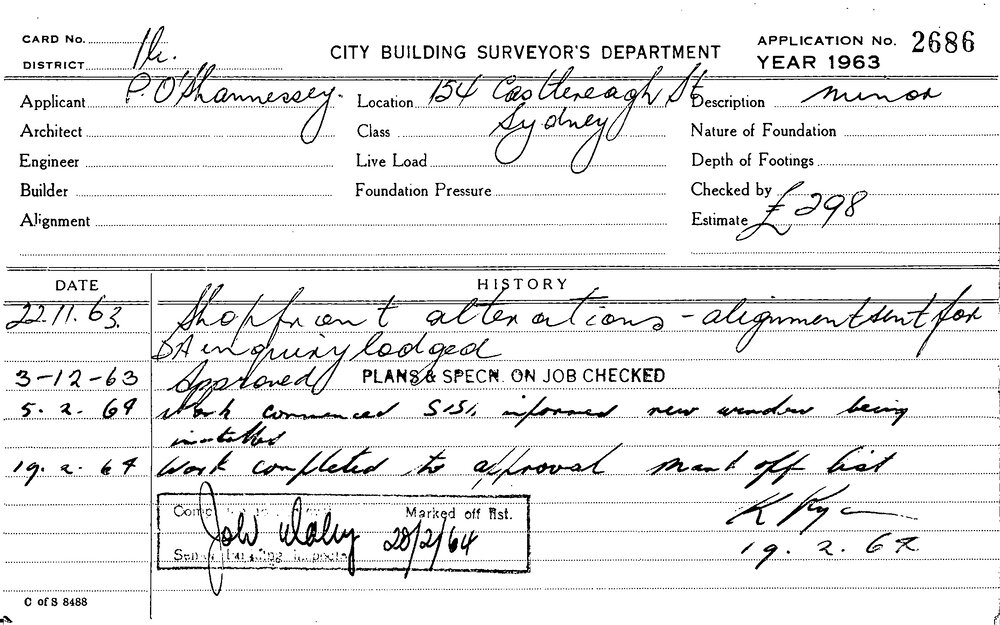 CARD No. 
CITY BUILDING SURVEYOR'S DEPARTMENT
APPLICATION No. 2686
DISTRICT
YEAR 1963
Applicant P. O'Shannessey. Location 154 Castlereagh St Description minor
Architect Class Sydney Nature of Foundation
Engineer Live Load Depth of Footings
Builder Foundation Pressure Checked by
Alignment Estimate £298
DATE HISTORY
22.11.63. Shopfront alterations - alignment sent for
DA inquiry lodged
3-12-63 Approved PLANS & SPECN. ON JOB CHECKED
5. 2. 64 Work commenced informed new window being
installed
19. 2. 64 Work completed to approval mark off list
K Ryan
19. 2. 64
Marked off list.
28/2/64
C of S 8488